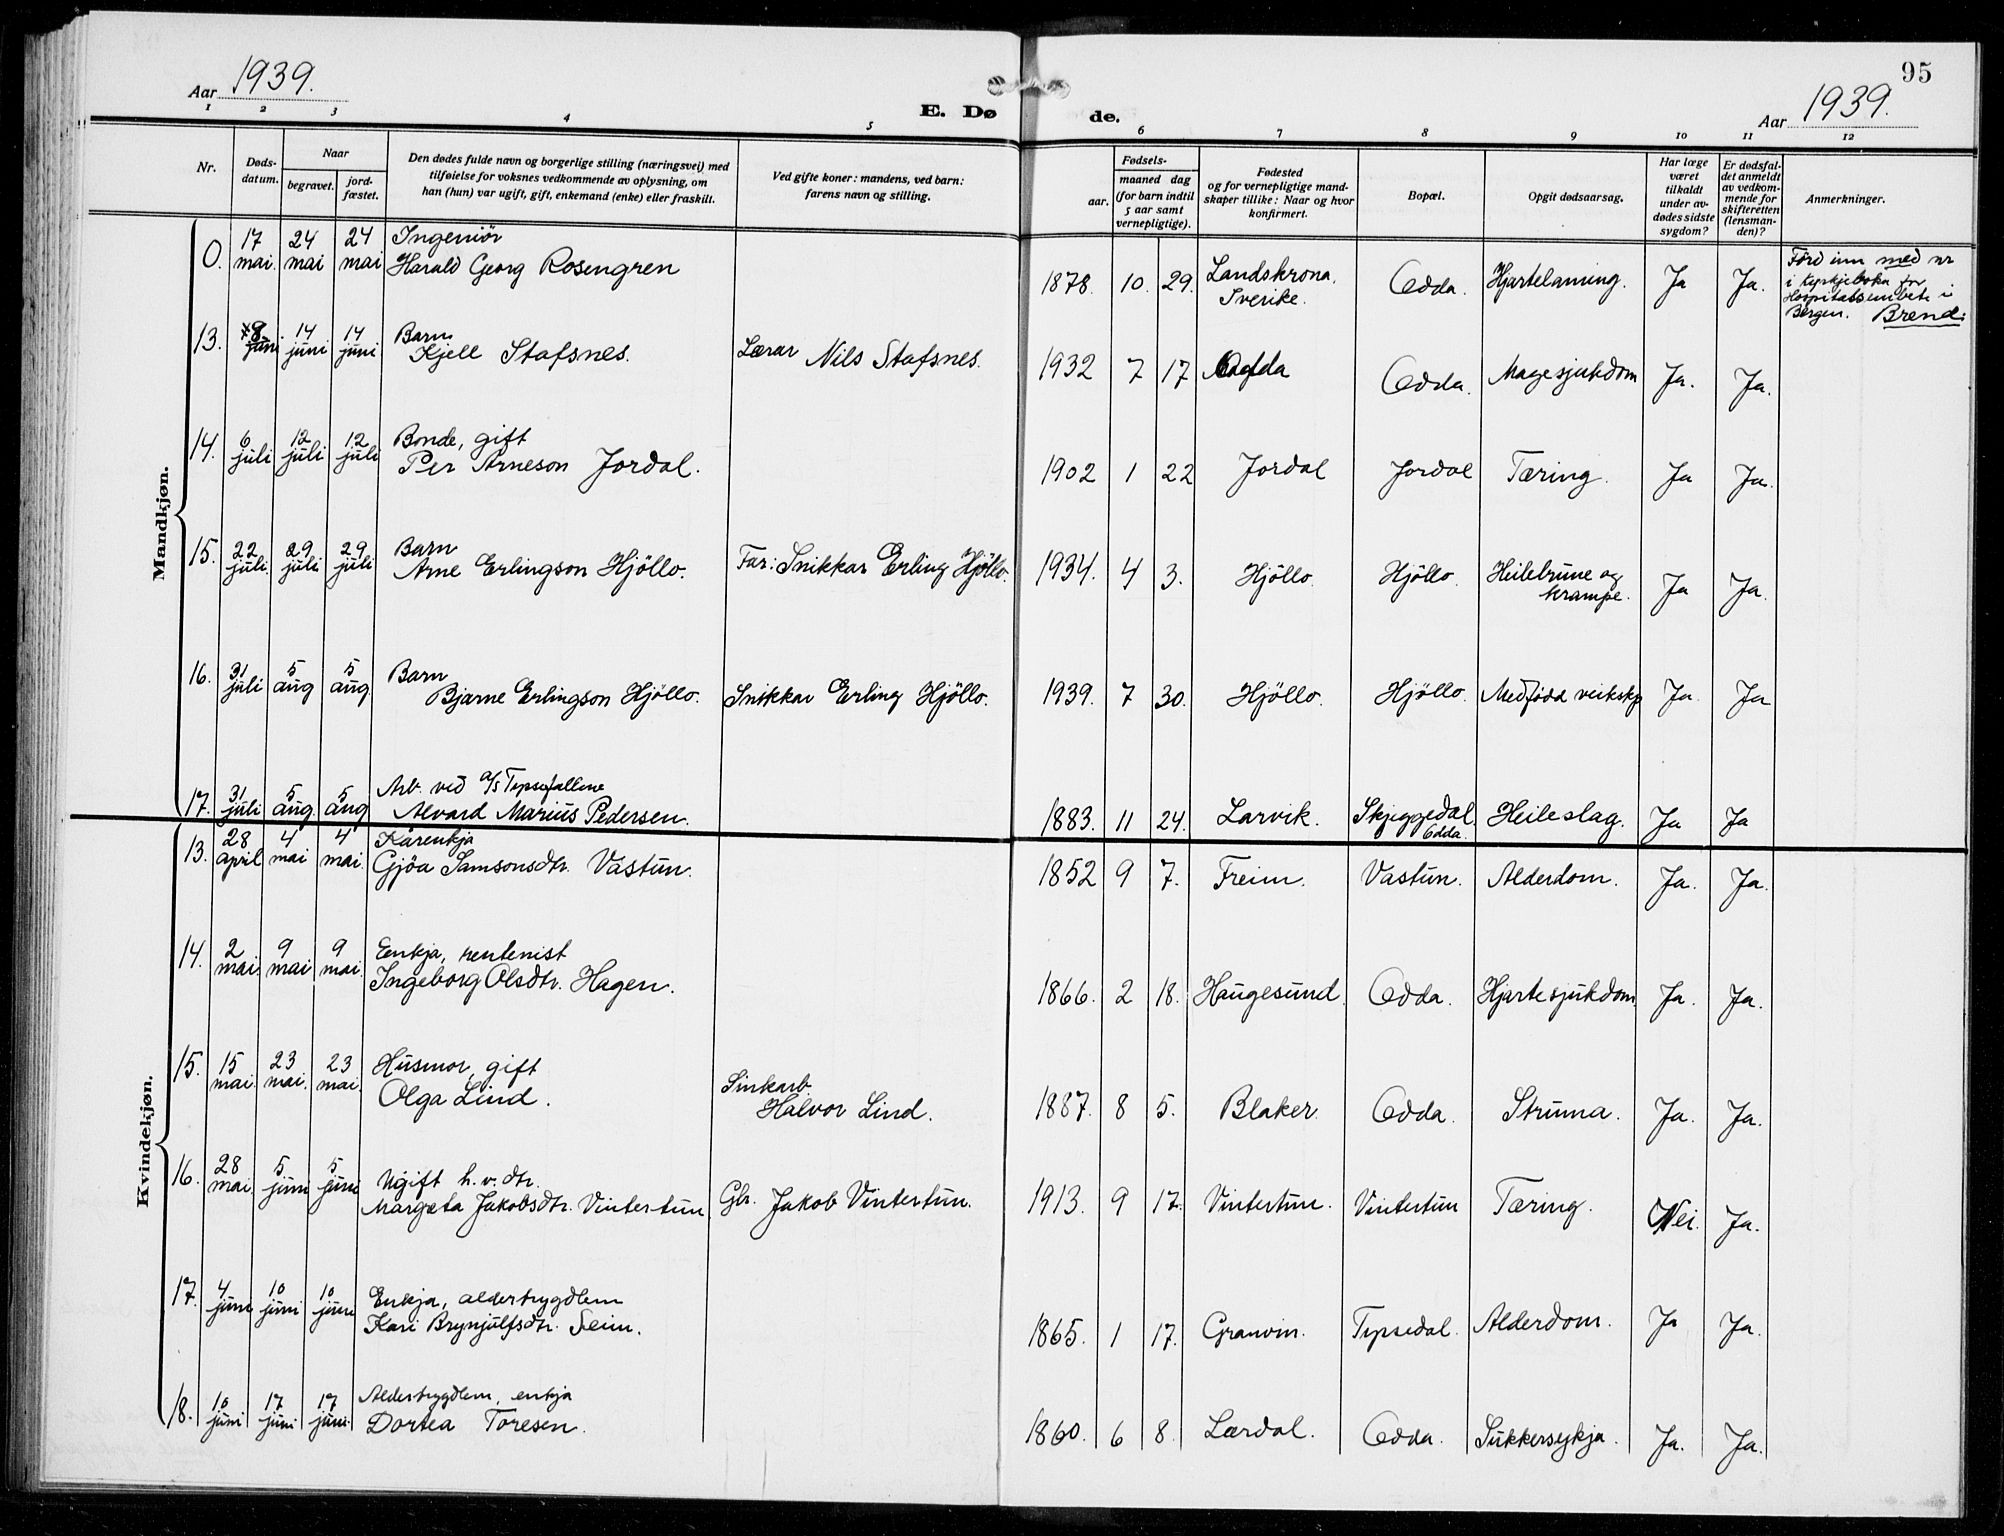 Aar 1939.
E. Døde.
95
Aar 1939.
1 2 3 4 5 6 7 8 9 10 11 12
Nr.
Døds-
datum.
Naar
begravet.
jord-
fæstet.
Den dødes fulde navn og borgerlige stilling (næringsvei) med
tilføielse for voksnes vedkommende av oplysning, om
han (hun) var ugift, gift, enkemand (enke) eller fraskilt.
Ved gifte koner: mandens, ved barn:
farens navn og stilling.
Fødsels-
aar.
maaned dag
(for barn indtil
5 aar samt
vernepligtige).
Fødested
og for vernepligtige mand-
skaper tillike: Naar og hvor
konfirmert.
Bopæl.
Opgit dødsaarsag.
Har læge
været
tilkaldt
under av-
dødes sidste
sygdom?
Er dødsfal-
det anmeldt
av vedkom-
mende for
skifteretten
(lensman-
den)?
Anmerkninger.
Mandkjøn.
0. 17 mai. 24 mai 24 mai Ingeniör
Harald Georg Rosengren
1878. 10. 29. Landskrona,
Sverike. Odda. Hjartelaming. Ja Ja.
Förd inn med nr
i kyrkjeboka for
Hospitalsembete i
Bergen. Brend.
13. 8 juni 14 juni 14 juni Barn
Kjell Stafsnes. Lærar Nils Stafsnes.
1932 7 17 Odda Odda. Magesjukdom Ja. Ja.
14. 6 juli 12 juli 12 juli Bonde, gift
Per Arneson Jordal.
1902 1 22 Jordal Jordal Tæring. Ja Ja.
15. 22 juli. 29 juli 29 juli Barn
Arne Erlingson Hjöllo. Far: Snikkar Erling Hjöllo.
1934. 4 3. Hjöllo. Hjöllo. Heilebrune og
krampe. Ja Ja.
16. 31 juli 5 aug 5 aug Barn
Bjarne Erlingson Hjöllo. Snikkar Erling Hjöllo.
1939. 7 30. Hjöllo. Hjöllo. Medfödd veikskp Ja. Ja
17. 31 juli 5 aug. 5 aug Arb. ved a/s Tyssefallene
Alvard Marius Pedersen.
1883. 11 24. Larvik. Skjeggedal
Odda. Heileslag. Ja Ja
Kvindekjøn.
13. 28 april 4 mai 4 mai. Kårenkja
Gjöa Samsonsdtr. Vastun.
1852 9 7. Freim. Vastun. Alderdom. Ja. Ja.
14. 2 mai. 9 mai 9 mai. Enkja, rentenist
Ingeborg Olsdtr. Hagen.
1866. 2 18. Haugesund. Odda. Hjartesjukdom. Ja. Ja.
15. 15 mai. 23 mai. 23 mai. Husmor, gift
Olga Lind. Sinkarb.
Halvor Lind.
1887. 8 5. Blaker. Odda. Struma. Ja. Ja.
16. 28 mai. 5 juni 5 juni Ugift h.v. dtr.
Margeta Jakobsdtr. Vintertun. Gbr. Jakob Vintertun.
1913. 9 17. Vintertun. Vintertun Tæring. Nei. Ja.
17. 4 juni 10 juni 10 juni Enkja, alderstrygdlem
Kari Brynjulfsdtr. Seim.
1865. 1 17. Granvin. Tyssedal. Alderdom. Ja Ja.
18. 10 juni 17 juni 17 juni. Alderstrygdlem, enkja
Dortea Toresen.
1860. 6 8. Lærdal. Odda. Sukkersykja. Ja. Ja.